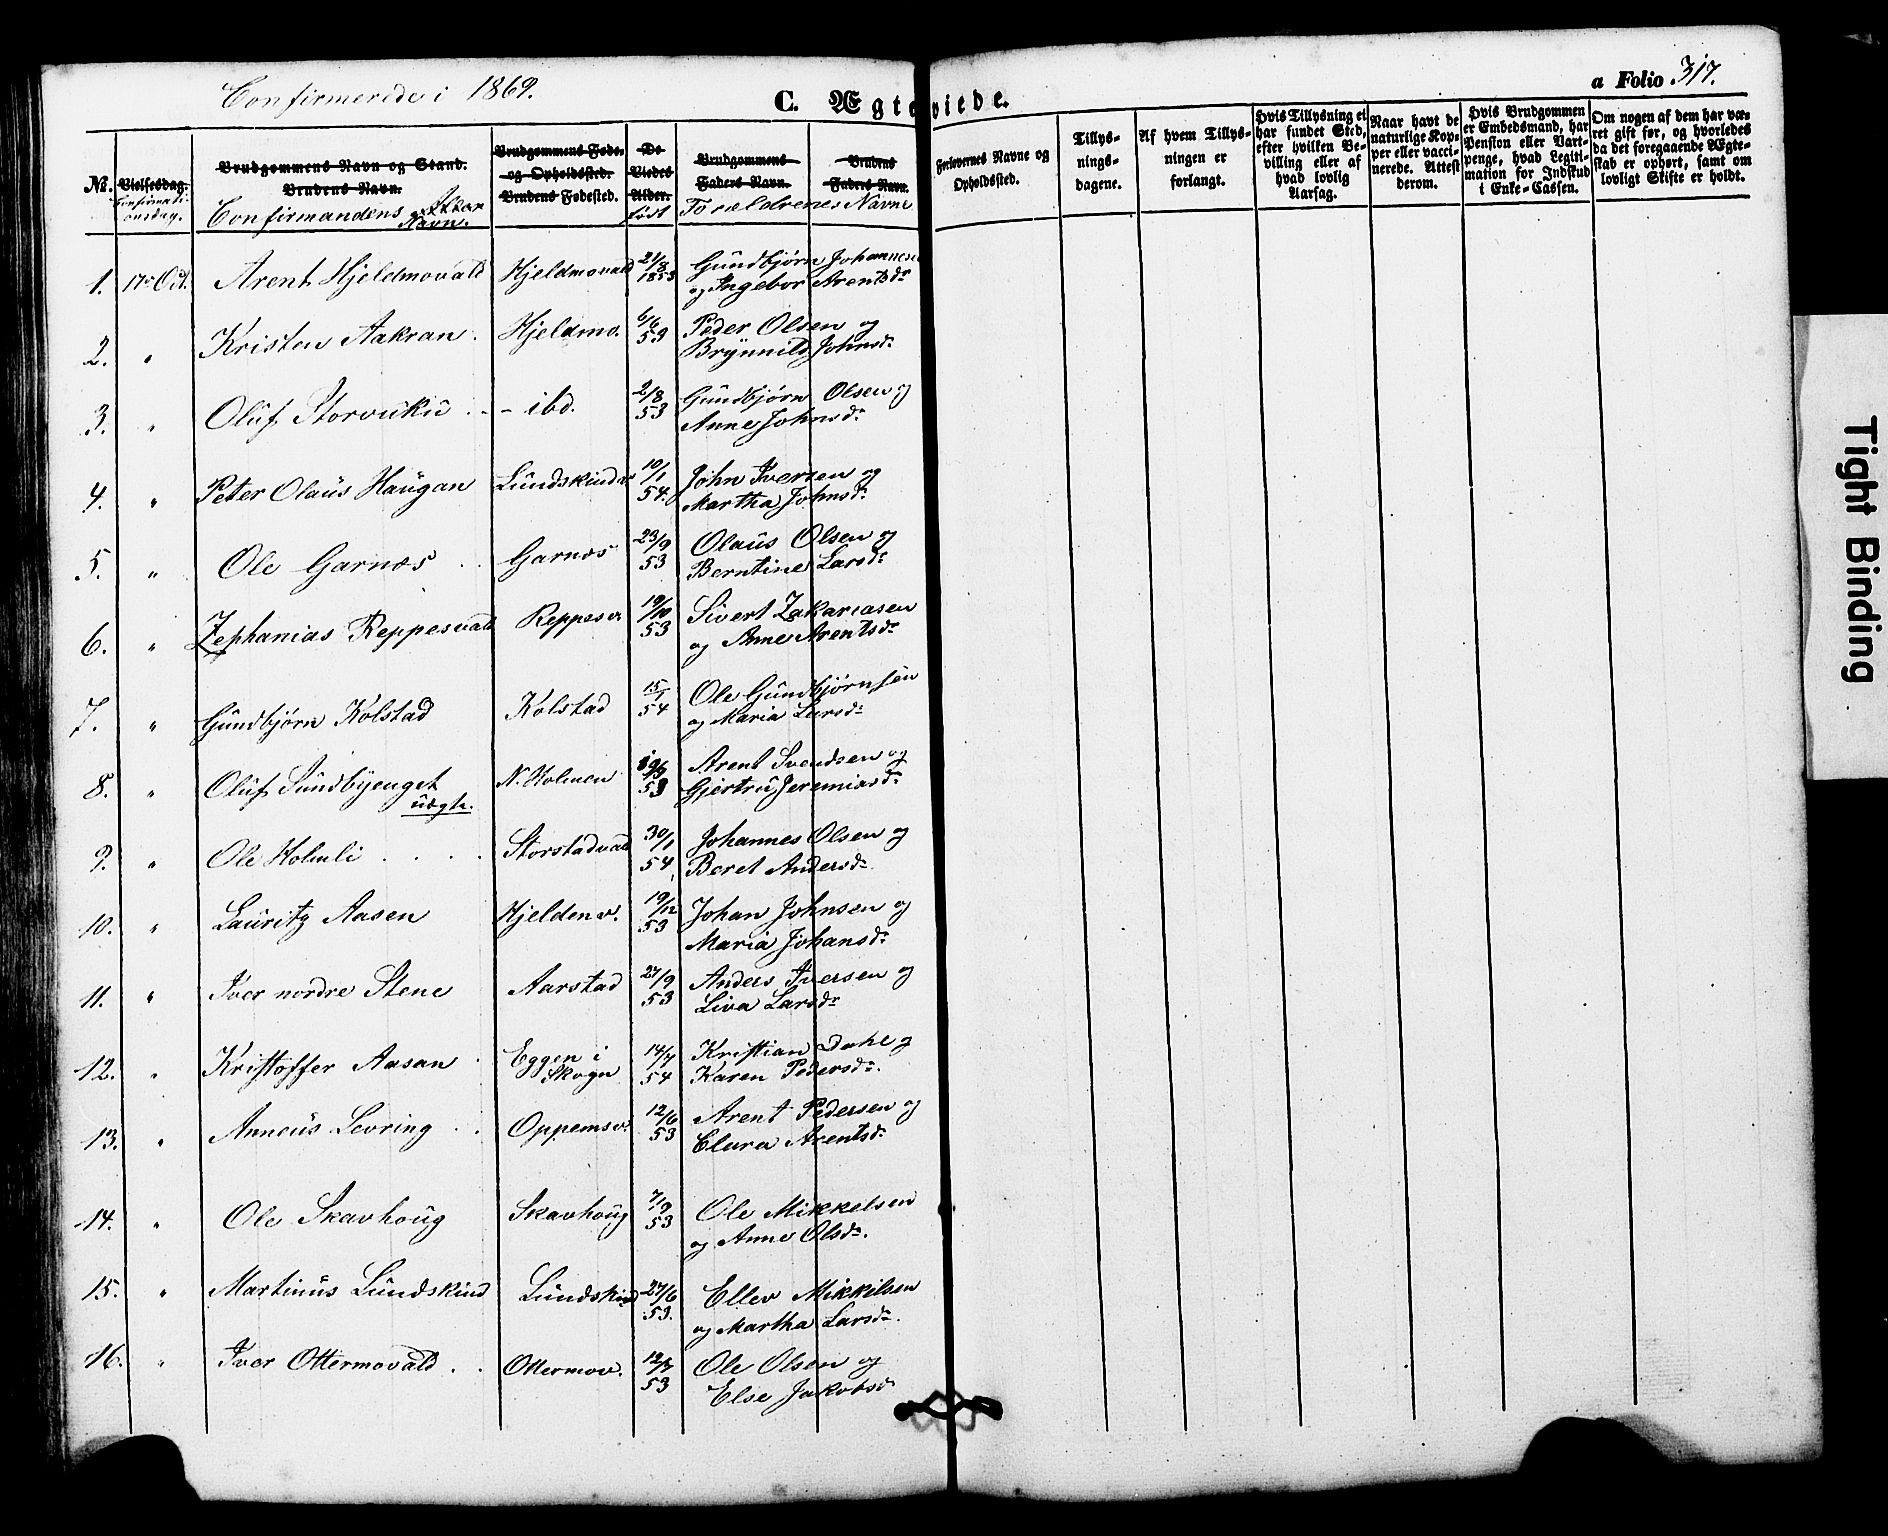 Confirmerede i 1869.
C. Ægteviede.
a Folio 317.
No.
Vielsesdag.
Confirmati-
onsdag.
Brudgommens Navn og Stand.
Brudens Navn.
Confirmandens
Navn.
Brudgommens Føde-
og Opholdssted.
Brudens Fødested.
De
Viedes
Alder.
født
Brudgommens
Faders Navn.
Brudens
Faders Navn.
Forældrenes Navne
Forlovernes Navne og
Opholdssted.
Tillys-
nings-
dagene.
Af hvem Tillys-
ningen er
forlangt.
Hvis Tillysning ei
har fundet Sted,
efter hvilken Be-
villing eller af
hvad lovlig
Aarsag.
Naar havt de
naturlige Kop-
per eller vacci-
nerede. Attest
derom.
Hvis Brudgommen
er Embedsmand, har
Pension eller Vart-
penge, hvad Legiti-
mation for Indskud
i Enke-Cassen.
Om nogen af dem har væ-
ret gift før, og hvorledes
da det foregaaende Ægte-
skab er ophørt, samt om
lovligt Skifte er holdt.
1. 17de Oct. Arent Hjeldmovald Hjeldmovald 21/8 1853 Gundbjørn Johannesen
og Ingebor Arentsdr
2. " Kristen Aakran. Hjeldmo. 6/6 53 Peder Olsen og
Brynnild Johnsdr
3. " Oluf Storvuku - ibd. 2/8 53 Gundbjørn Olsen og
Anne Johnsdr
4. " Peter Olaus Haugan Lundskinder 10/1 54. John Iversen og
Martha Johnsdr
5. " Ole Garnæs Garnæs 23/9 53 Olaus Olsen og
Berntine Larsdr
6. " Zephanias Reppesvald Reppesv 19/10 53 Sivert Zakariasen
og Anne Arentsdr
7. " Gundbjørn Kolstad Kolstad 15/1 54 Ole Gundbjørnsen
og Maria Larsdr
8. " Oluf Sundbyenget N. Holmen 53 Arent Svendsen og
uægte. Gjertru Jeremiasdr
9. " Ole Holmli Storstadvald 30/1 54 Johannes Olsen og
Beret Andersdr
10. " Lauritz Aasen Hjelden v. 19/12 53 Johan Johnsen og
Maria Johansdr
11. " Iver nordre Stene Aarstad 27/9 53 Anders Iversen og
Liva Larsdr
12. " Kristoffer Aasan Eggen i 14/7 54 Kristian Dahl og
Skogn Karen Pedersdr.
13. " Anneus Levring Oppemsv. 12/6 53 Arent Pedersen og
Clara Arentsdr
14. " Ole Skavhoug Skavhoug 7/9 53 Ole Mikkelsen
og Anne Olsdr.
15. " Martinus Lundskind Lundskind 27/6 53. Ellev Mikkelsen
og Martha Larsdr.
16. " Iver Ottermovald Ottermov. 12/7 53 Ole Olsen og
Else Jakobsdr
Tight Binding